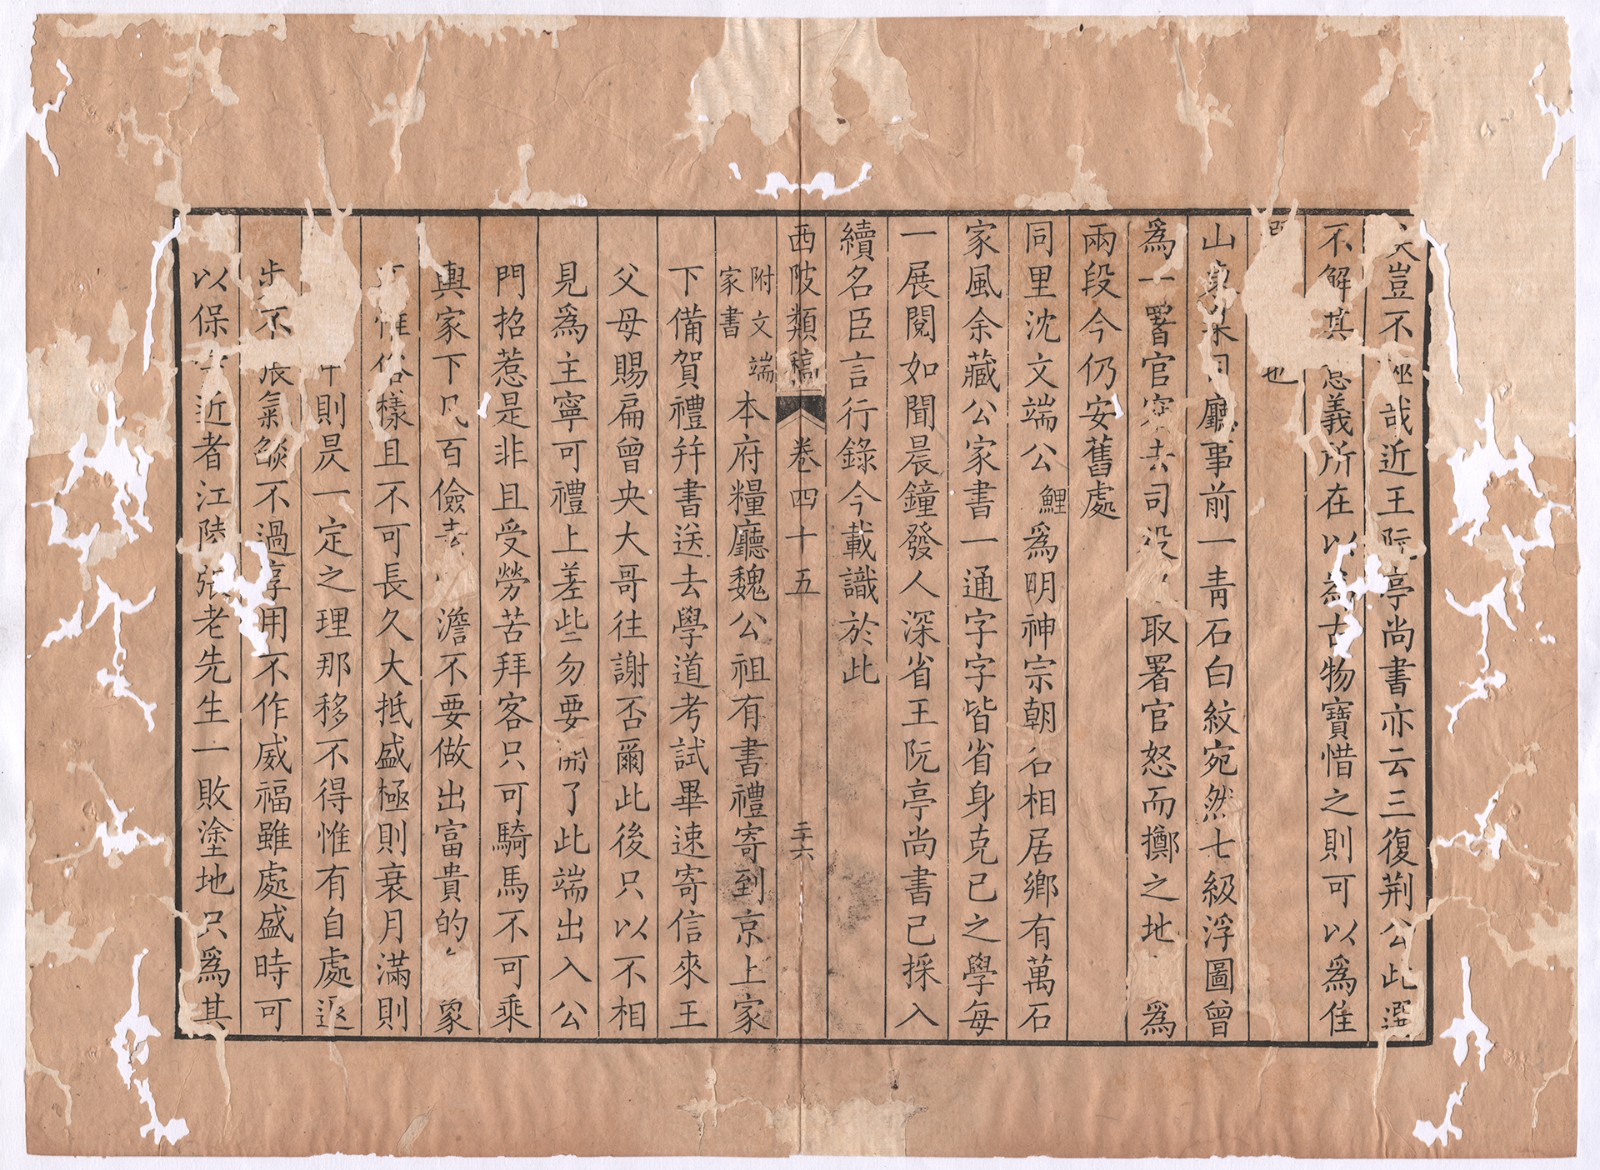 豈不誣哉近王阮亭尚書亦云三復荆公此選
不解其意義所在以為古物寶惜之則可以爲佳
也
山東廨司廳事前一青石白紋宛然七級浮圖曾
爲一署官窃去司沒取署官怒而擲之地爲
兩段今仍安舊處
同里沈文端公鯉爲明神宗朝名相居鄉有萬石
家風余藏公家書一通字字皆省身克己之學每
一展閱如聞晨鐘發人深省王阮亭尚書已採入
續名臣言行錄今載識於此
西陂類稿 卷四十五 三十六
附文端家書 本府糧廳魏公祖有書禮寄到京上家
下備賀禮幷書送去學道考試畢速寄信來王
父母賜扁曾央大哥往謝否爾此後只以不相
見爲主寧可禮上差些勿要開了此端出入公
門招惹是非且受勞苦拜客只可騎馬不可乘
輿家下凡百儉素澹不要做出富貴的象
惟俗樣且不可長久大抵盛極則衰月滿則
中則昃一定之理那移不得惟有自處退
步不張氣燄不過享用不作威福雖處盛時可
以保近者江陵張老先生一敗塗地只爲其